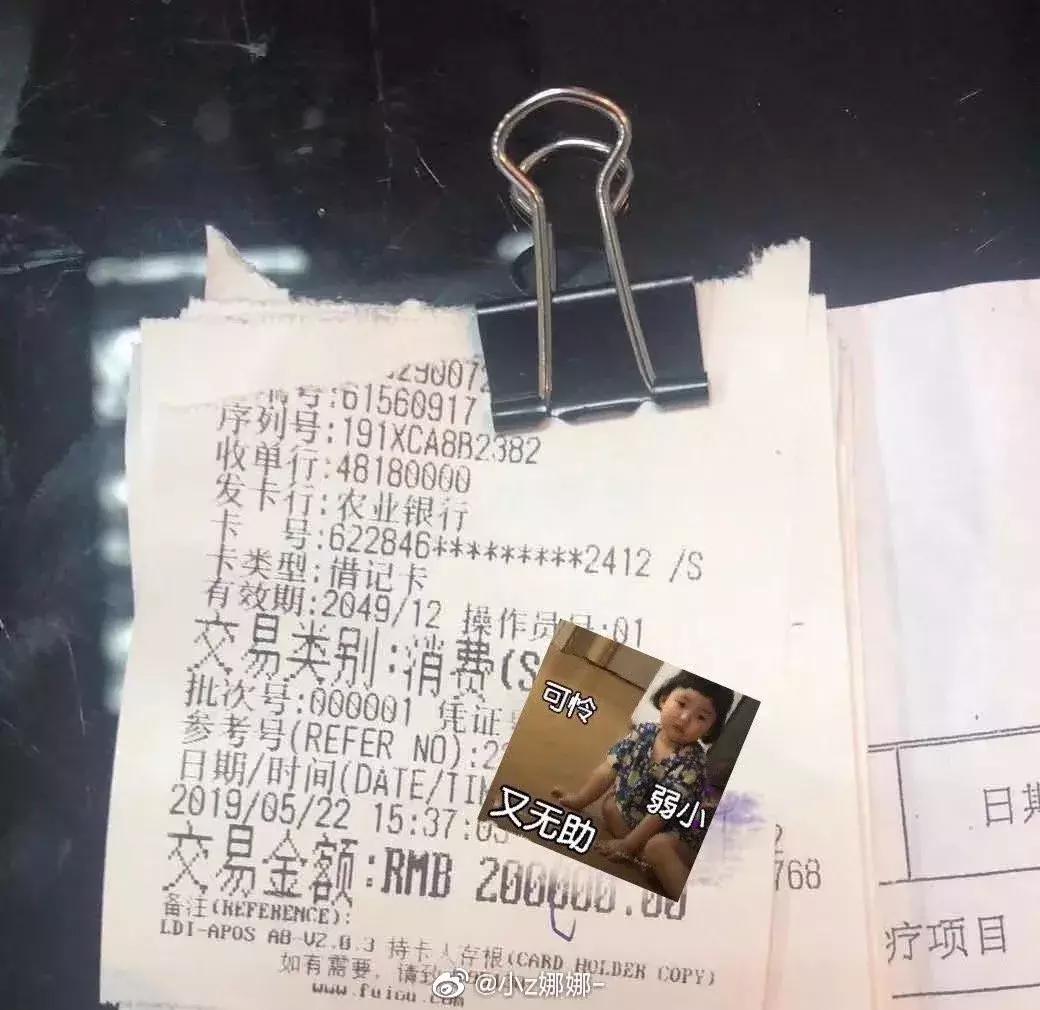 号:61560917
序列号:191XCA8B2382
收单行:48180000
发卡行:农业银行
卡 号:622846*********2412 /S
卡类型:借记卡
有效期:2049/12 操作员号:01
交易类别:消费(S
批次号:000001 凭证
参考号(REFER NO):2
日期/时间(DATE/TIM
2019/05/22 15:37:
交易金额:RMB 200000.00
备注(REFERENCE):
LDI-APOS A8-V2.0.3 持卡人存根(CARD HOLDER COPY)
如有需要，请到
www.fuiou.com
可怜
弱小
又无助
768
日期
疗项目
@小z娜娜-